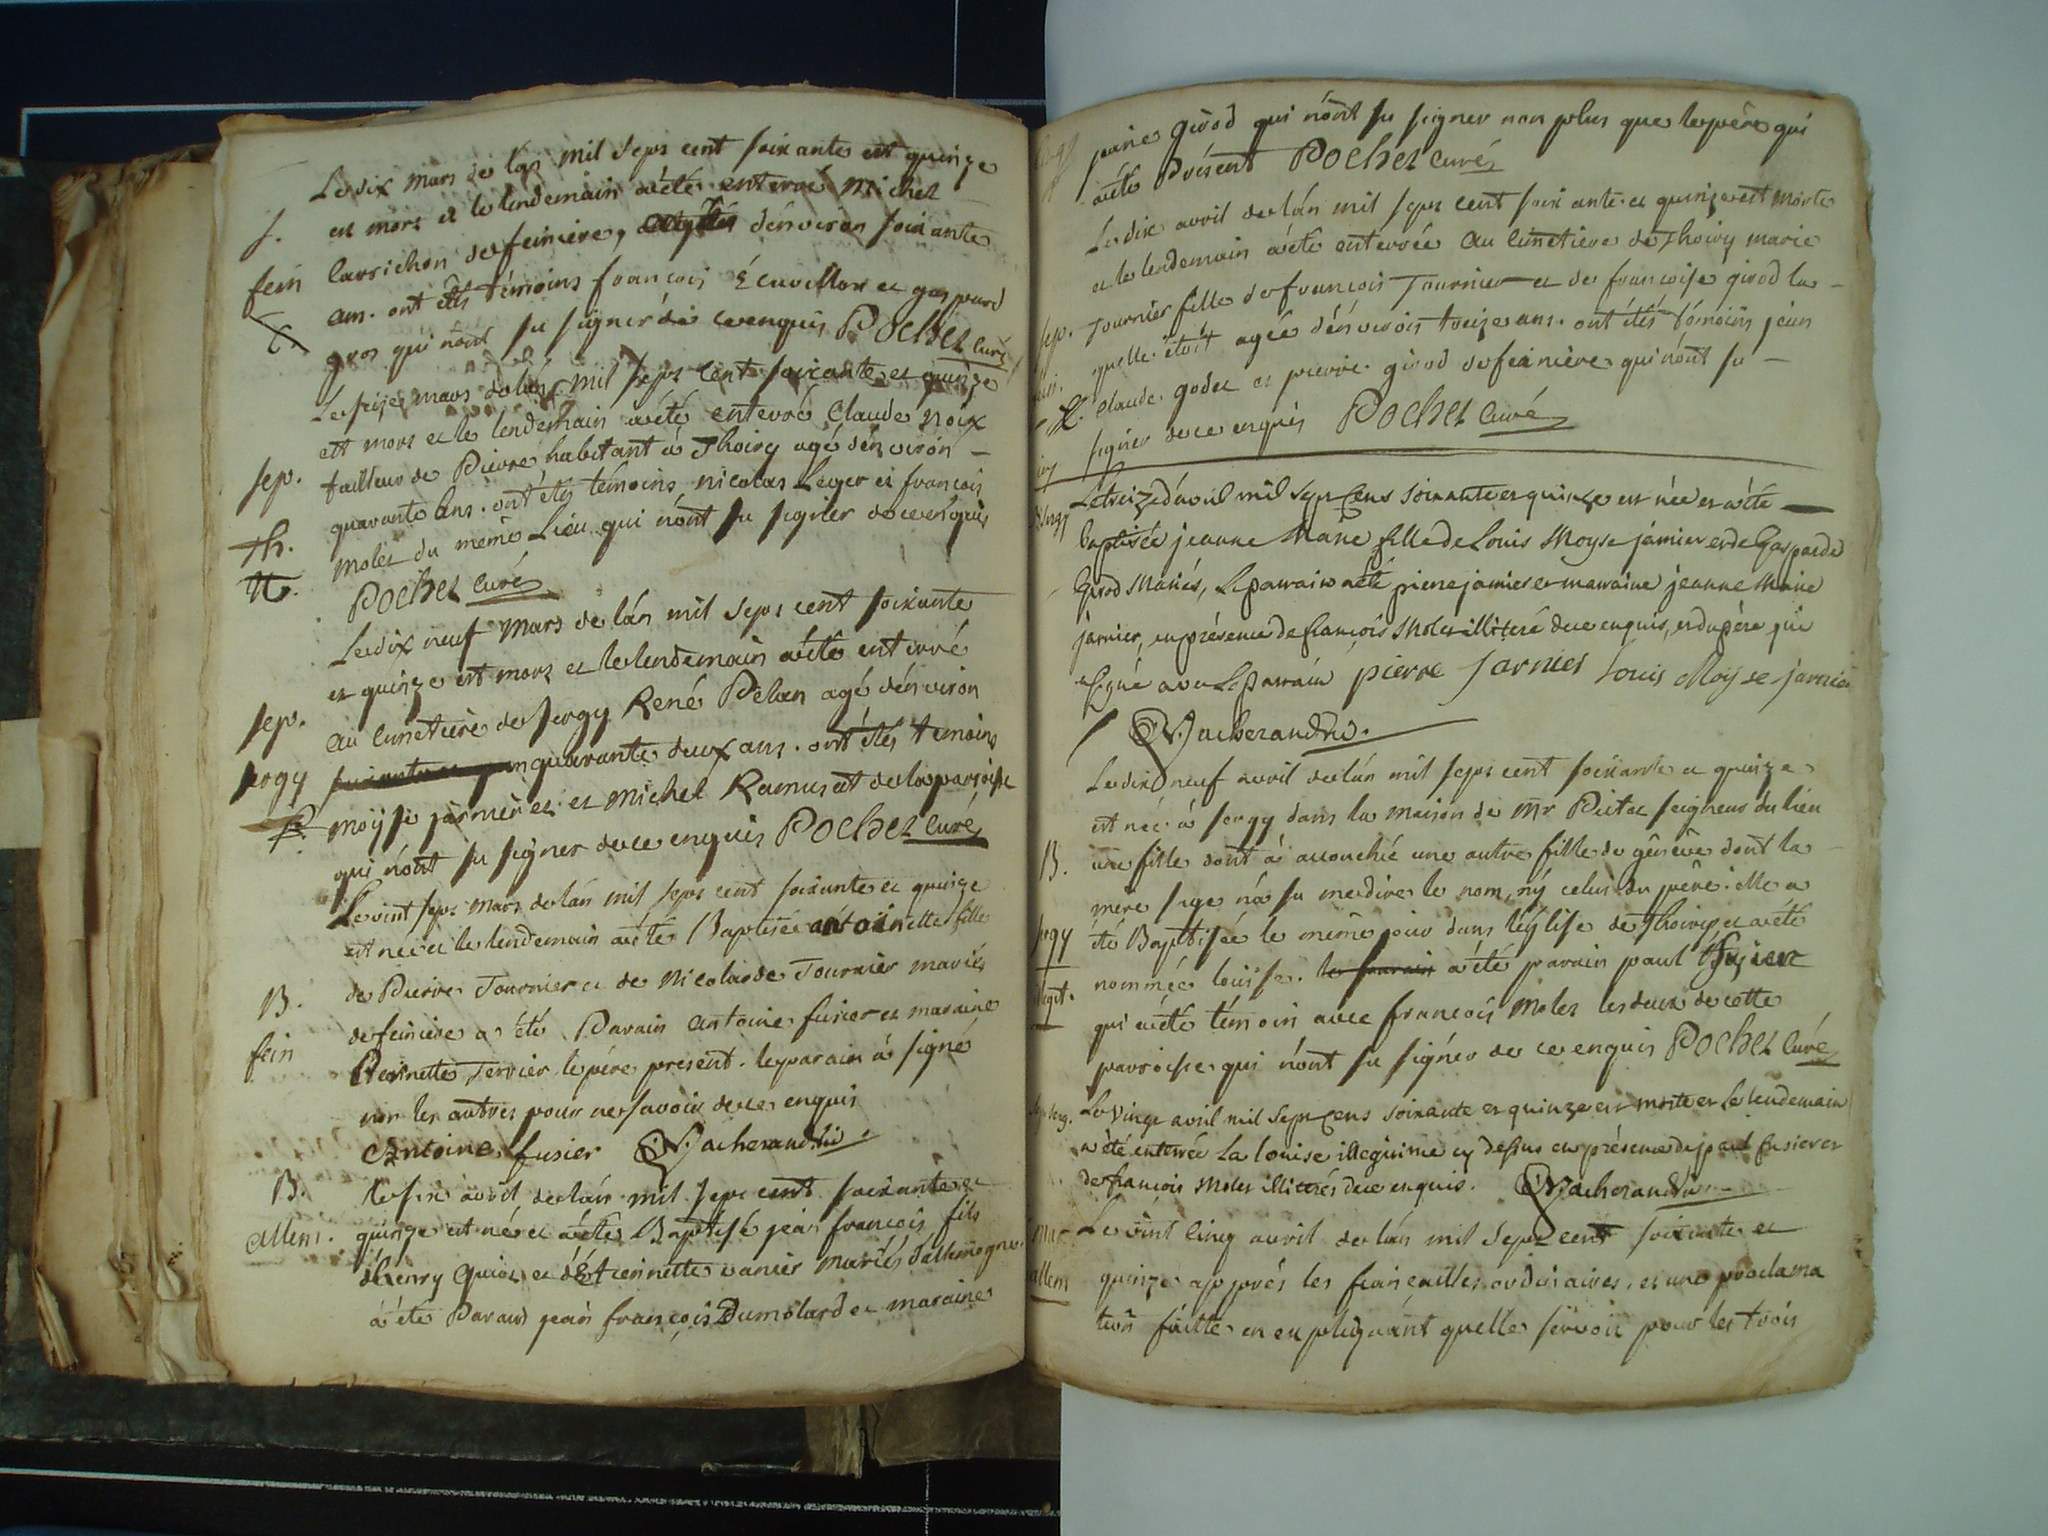 Le dix mars de l'an mil sept cent soixante et quinze
est mort et le lendemain a été enterré Michel
S.
Larrichon de feiniere, d'énviron soixante
fein
ans. ont étés témoins françois Écuvillon et gaspard
gros qui nónt su signer de ce enquis Pochet curé
Le seize mars de lán mil sept cent soixante et quinze
est mort et le lendemain a été enterré Claude noix
sep.
tailleur de Pierre, habitant à Thoiry agé dénviron
quarante ans. ont étés témoins nicolas Leger et françois
Th.
molet du même Lieu qui nónt su signer de ce enquis
Pochet curé
Le dix neuf mars de lán mil sept cent soixante
et quinze est mort et le lendemain a été enterré
sep.
au cimetiere de sergy René Pelan agé dénviron
sergy
quarante deux ans. ont étés temoins
moÿse jarnier et et michel Ramusat de la parroisse
qui nónt su signer de ce enquis Pochet curé
Le vint sept mars de lán mil sept cent soixante et quinze
est née et le lendemain a été Baptisée antoinette fille
B.
de Pierre Tournier et de Nicolarde Tournier mariés
fein
de feiniere a été Parain antoine fusier et maraine
Pernette Tervier le pére present. le parain à signé
non les autres pour ne savoir de ce enquis
Antoine fusier Vacherandu
B.
le six avril de lán mil sept cent soixante et
allem.
quinze est né et a été Baptisé jean françois fils
dhenry quiot et d'Étiennette vanier mariés d'allemogne
à été Parain jean françois Dumolard et maraine
jeanne girod qui nónt su signer non plus que le pére qui
a été présent Pochet curé
Le dix avril de lán mil sept cent soixante et quinze est morte
et le lendemain a été enterrée au cimetiere de Thoiry marie
sep.
Tournier fille de françois Tournier et de françoise girod la
quelle étoit agée dénviron treize ans. ont étés témoins jean
Claude godet et pierre girod de feiniere qui nónt su
signer de ce enquis Pochet Curé
Le treize d'avril mil sept Cens soixante et quinze est née et a été
Sergy
baptisée jeanne Marie fille de Louis Moyse jarnier et de Gasparde
Girod Mariés, Le parrain a été pierre jarnier et marraine jeanne Marie
jarnier, en présence de françois Molet illiteré de ce enquis, et du père qui
a signé avec Le parrain pierre Jarnier Louis Moyse jarnier
Vacherandu.
Le dix neuf avril de lán mil sept cent soixante et quinze
est née à sergy dans la maison de Mr Pictet seigneur du lieu
B.
une fille dont à accouché une autre fille de génêve dont la
mere sage ná su me dire le nom, nÿ celui du père. elle a
sergy
été Baptisée le même jour dans léglise de thoiry, et a été
nommée louise. le parain a été parain paul fusier
qui a été témoin avec françois Molet les deux de cette
parroisse qui nónt su signer de ce enquis Pochet Curé
Le vingt avril mil sept Cens soixante et quinze est morte et Le lendemain
a été enterrée La louise illegitime cy dessus en présence de paul fusier et
de françois Molet illiterés de ce enquis. Vacherandu
Le vint cinq avril de lán mil sept cent soixante et
allem
quinze apprés les fiançailles ordinaires, et une proclama
tion faitte en expliquant quelle servoit pour les trois